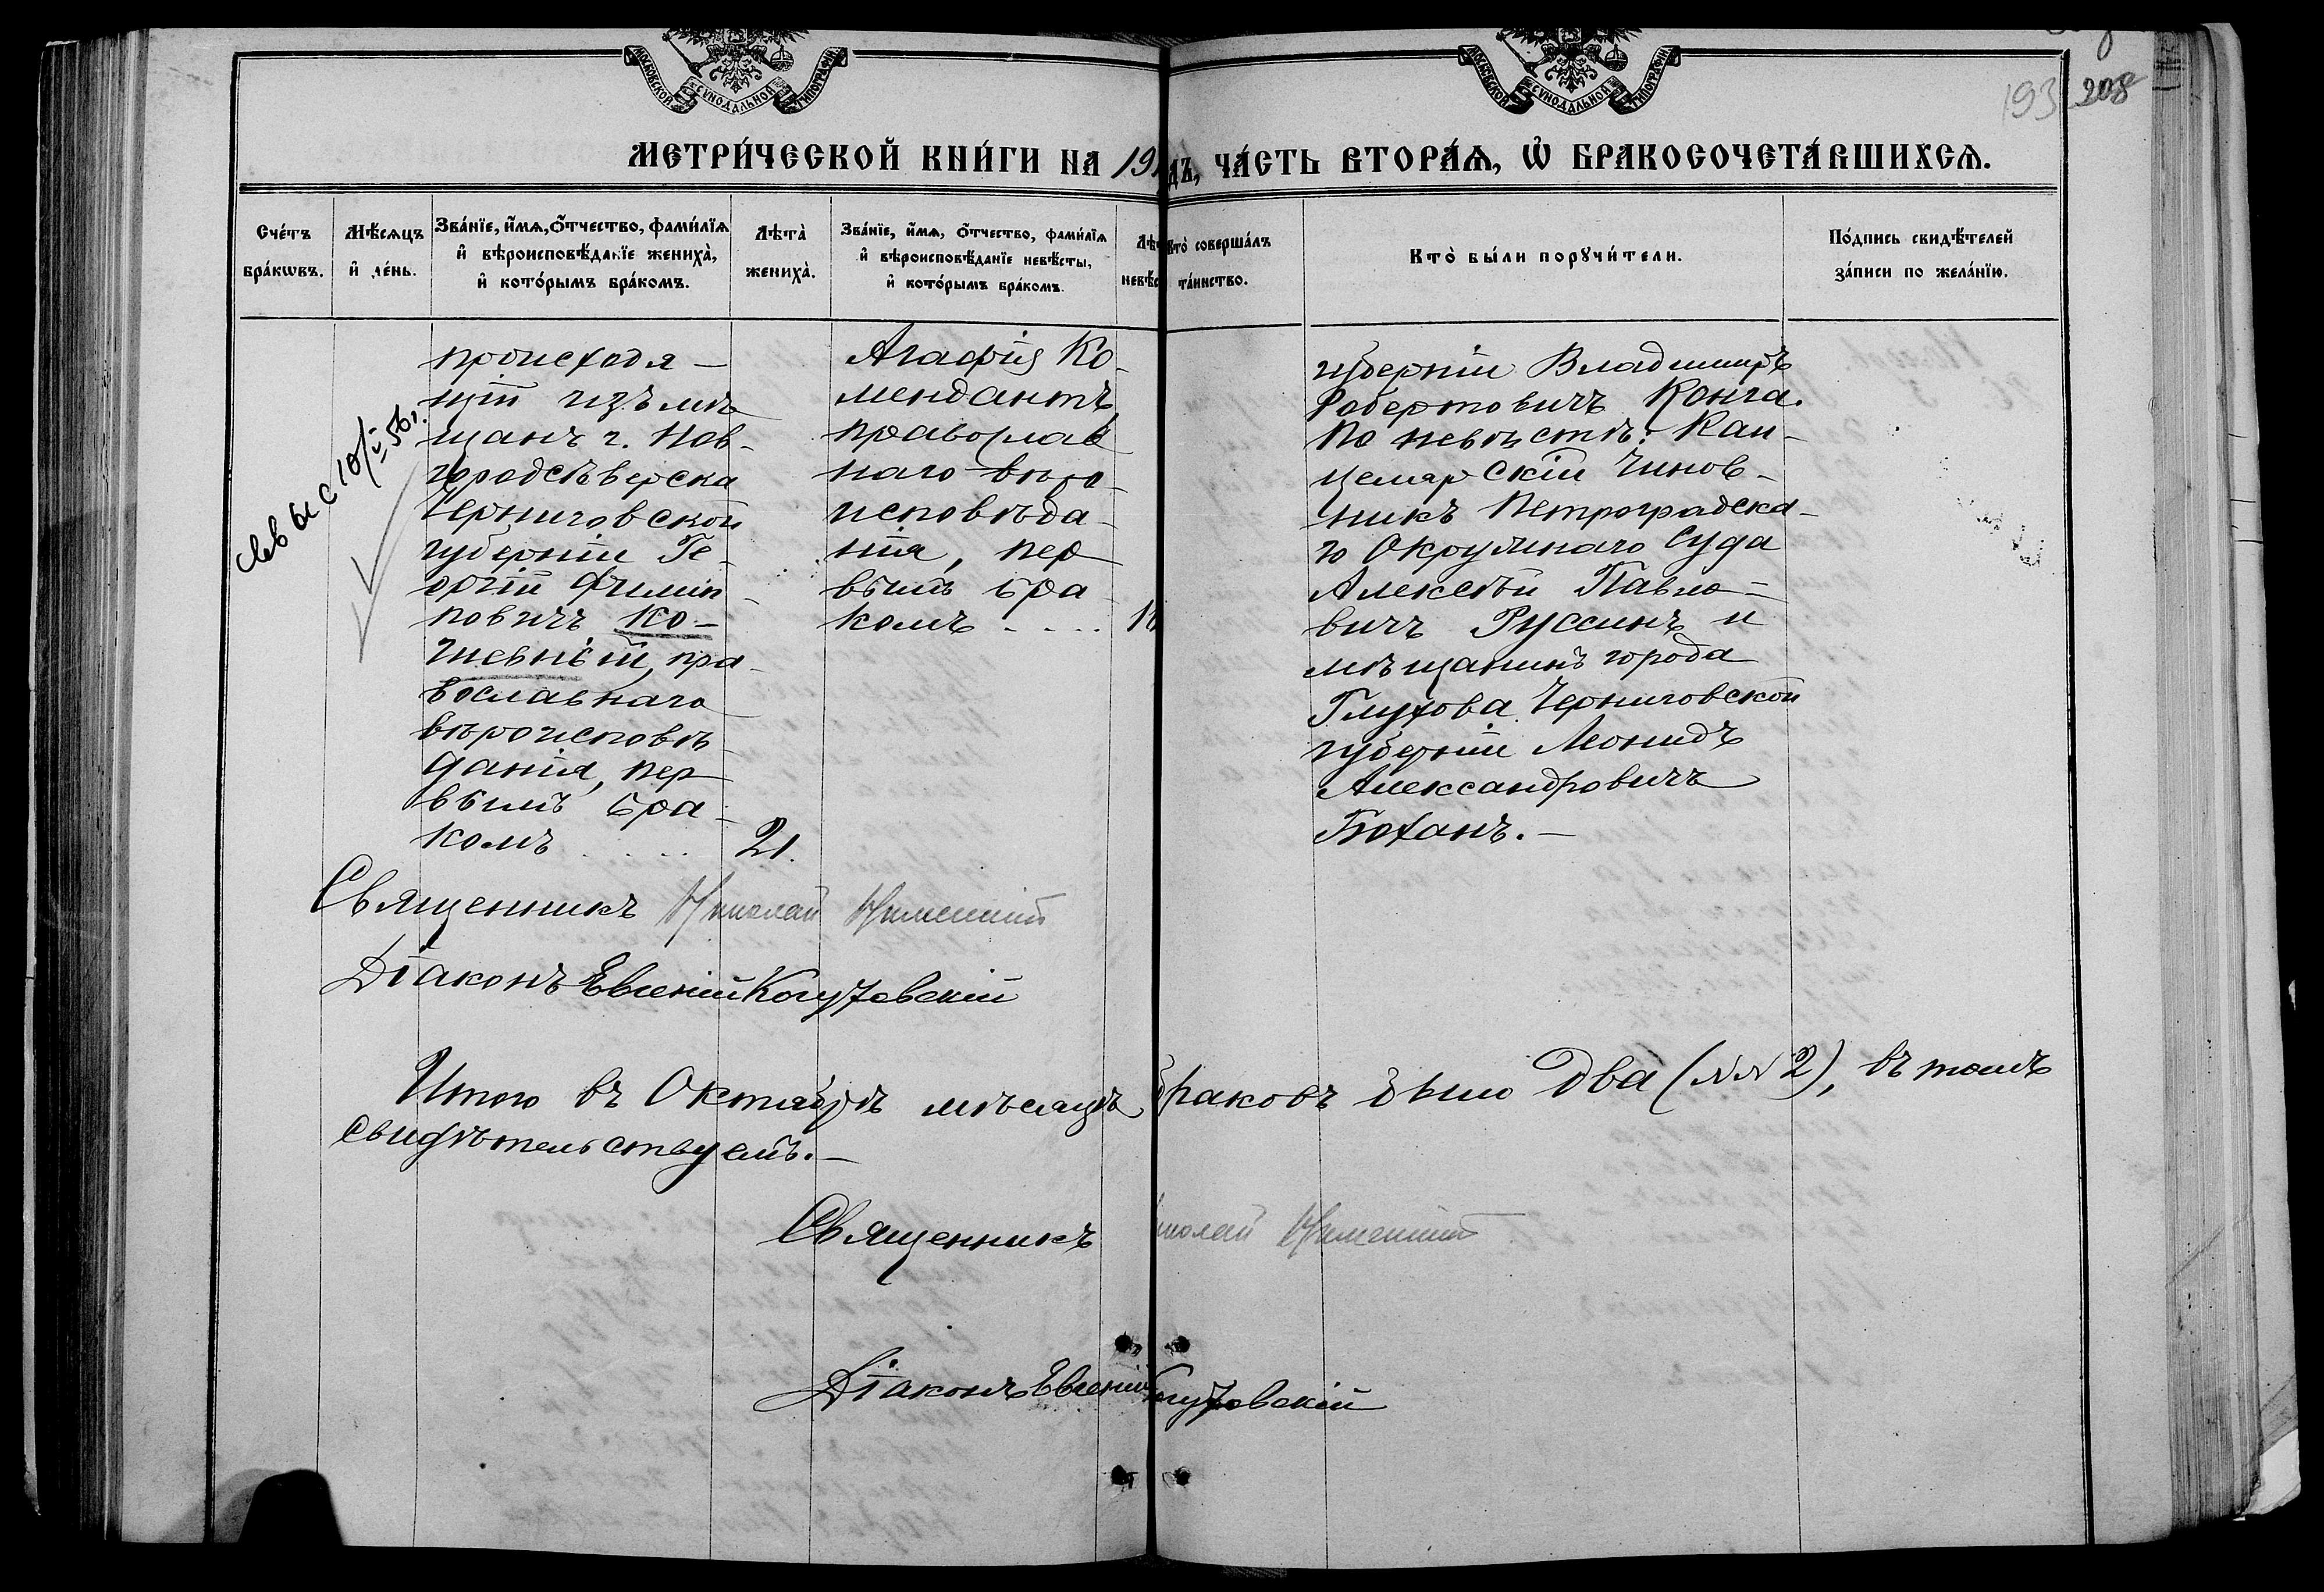 МОСКОВСКОЙ СѴНОДАЛЬНОЙ ТИПОГРАФІИ
МОСКОВСКОЙ СѴНОДАЛЬНОЙ ТИПОГРАФІИ
193 208
МЕТРИ́ЧЕСКОЙ КНИ́ГИ НА 191
дъ, ЧА́СТЬ ВТОРА́Я, Ѡ БРАКОСОЧЕТА́ВШИХСЯ.
Сче́тъ бра́кѡвъ.
Мѣ́сяцъ и҆ де́нь.
Зва́нїе, и҆́мя, о҆́тчество, фами́лїя и҆ вѣроисповѣ́данїе жениха̀, и҆ кото́рымъ бра́комъ.
Лѣта̀ жениха̀.
Зва́нїе, и҆́мя, о҆́тчество, фами́лїя и҆ вѣроисповѣ́данїе невѣ́сты, и҆ кото́рымъ бра́комъ.
Лѣт
невѣс
Кто̀ соверша́лъ та́инство.
Кто̀ бы́ли порꙋчи́тели.
По́дпись свидѣ́телей за́писи по жела́нїю.
происходя-
щій изъ мѣ-
щанъ г. Нов-
городсѣверска
Черниговской
губерніи Ге-
оргій Филип-
повичъ Ко-
чневній, пра-
вославнаго
вѣроисповѣ-
данія, пер
вымъ бра-
комъ . . . . . 21.
Агафія Ко-
мендантъ,
православ
наго вѣро-
исповѣда-
нія, пер
вымъ бра
комъ . . . . 1
губерніи Владимиръ
Робертовичъ Конга.
По невѣстѣ: Кан-
целярскій Чинов-
никъ Петроградска-
го Окружнаго Суда
Алексѣй Павло-
вичъ Руссинъ и
мѣщанинъ города
Глухова Черниговской
губерніи Леонидъ
Александровичъ
Бюханъ.—
Священникъ Николай
Діаконъ Евгеній
Итого въ Октябрѣ мѣсяцѣ браковъ было два (№№ 2), въ томъ
свидѣтельствуемъ.—
Священникъ иколай
Діаконъ Евгеній